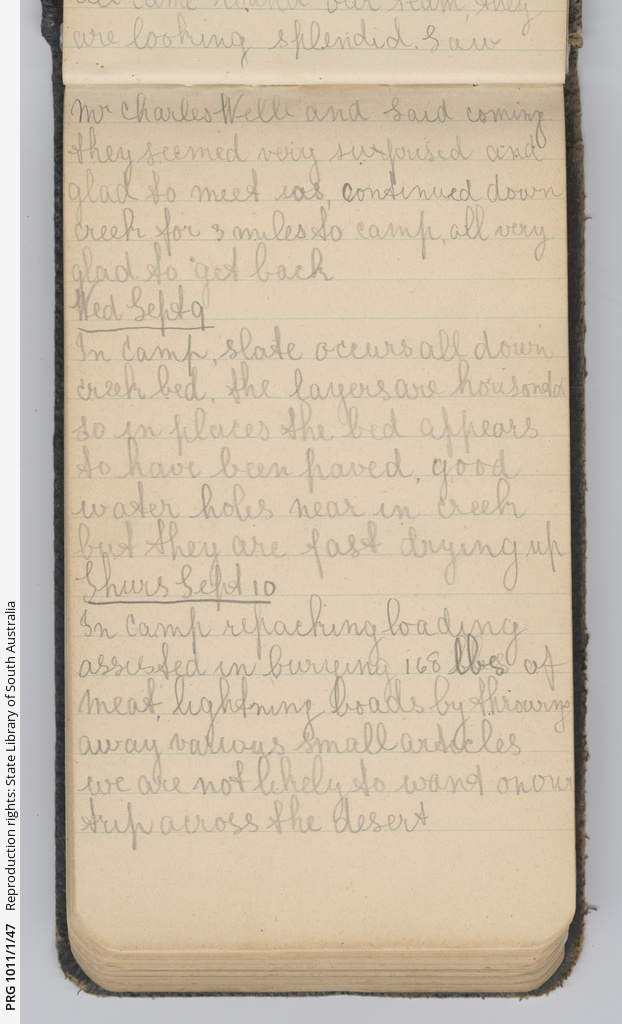 all came round our team, they
are looking splendid. Saw
Mr Charles Wells and Said coming
they seemed very surprised and
glad to meet us, continued down
creek for 3 miles to camp, all very
glad to get back
Wed Sept 9
In camp, slate occurs all down
creek bed, the layers are
so in places the bed appears
to have been paved, good
water holes near in creek
but they are fast drying up
Thurs Sept 10
In camp repacking loading
assisted in burying 168 lbs of
meat, lightning loads by throwing
away various small articles
we are not likely to want on our
trip across the desert
PRG 1011/1/47 Reproduction rights: State Library of South Australia